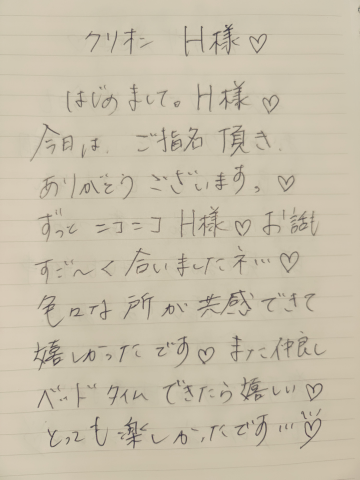 クリオン H様♡
はじめまして。H様♡
今日は、ご指名 頂き、
ありがとう ございます。♡
ずっと ニコニコ H様♡ お話し
すご〜く 合いましたネ…♡
色々な 所が 共感できて
嬉しかったです♡ また仲良し
ベッドタイム できたら嬉しい♡
とっても 楽しかったです…♡